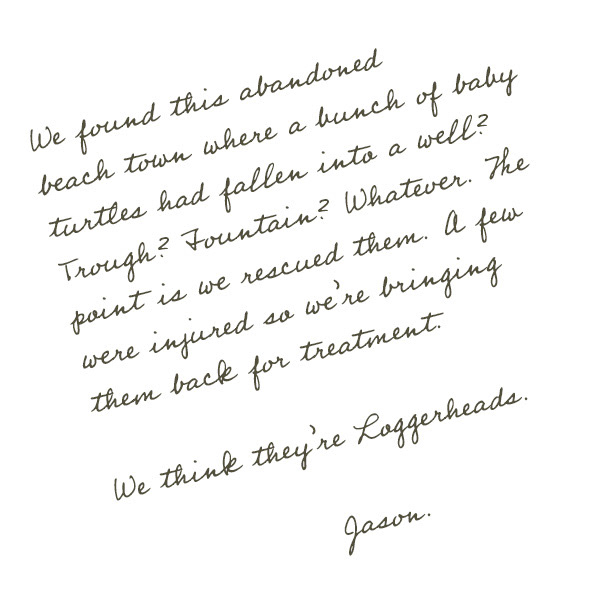 We found this abandoned
beach town where a bunch of baby
turtles had fallen into a well?
Trough? Fountain? Whatever. The
point is we rescued them. A few
were injured so we're bringing
them back for treatment.
We think they're Loggerheads.
Jason.